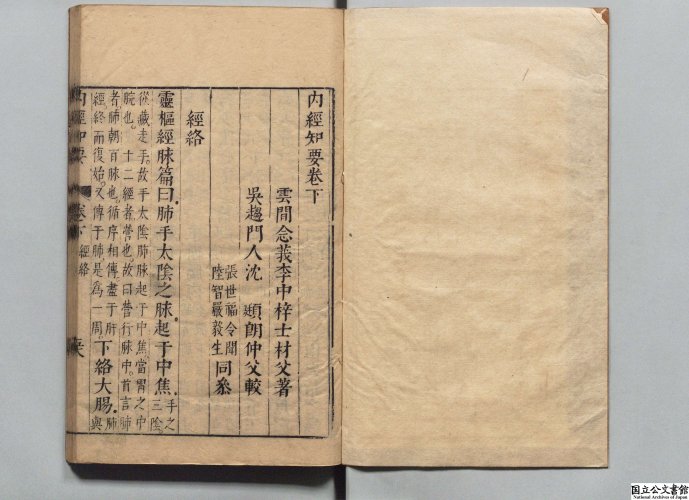 內經知要卷下
雲間念莪李中梓士材父著
吳趨門人沈 頲朗仲父較
張世福令聞
陸智嚴毅生
同叅
經絡
靈樞經脉篇曰肺手太陰之脉起于中焦手之三陰
從藏走手故手太陰肺脉起于中焦當胃之中
脘也十二經者營也故曰營行脉中首言肺
者肺朝百脉也循序相傳盡于肝
經終而復始又傳于肺是為一周下絡大腸肺與
內經知要 卷下 經絡
国立公文書館
National Archives of Japan